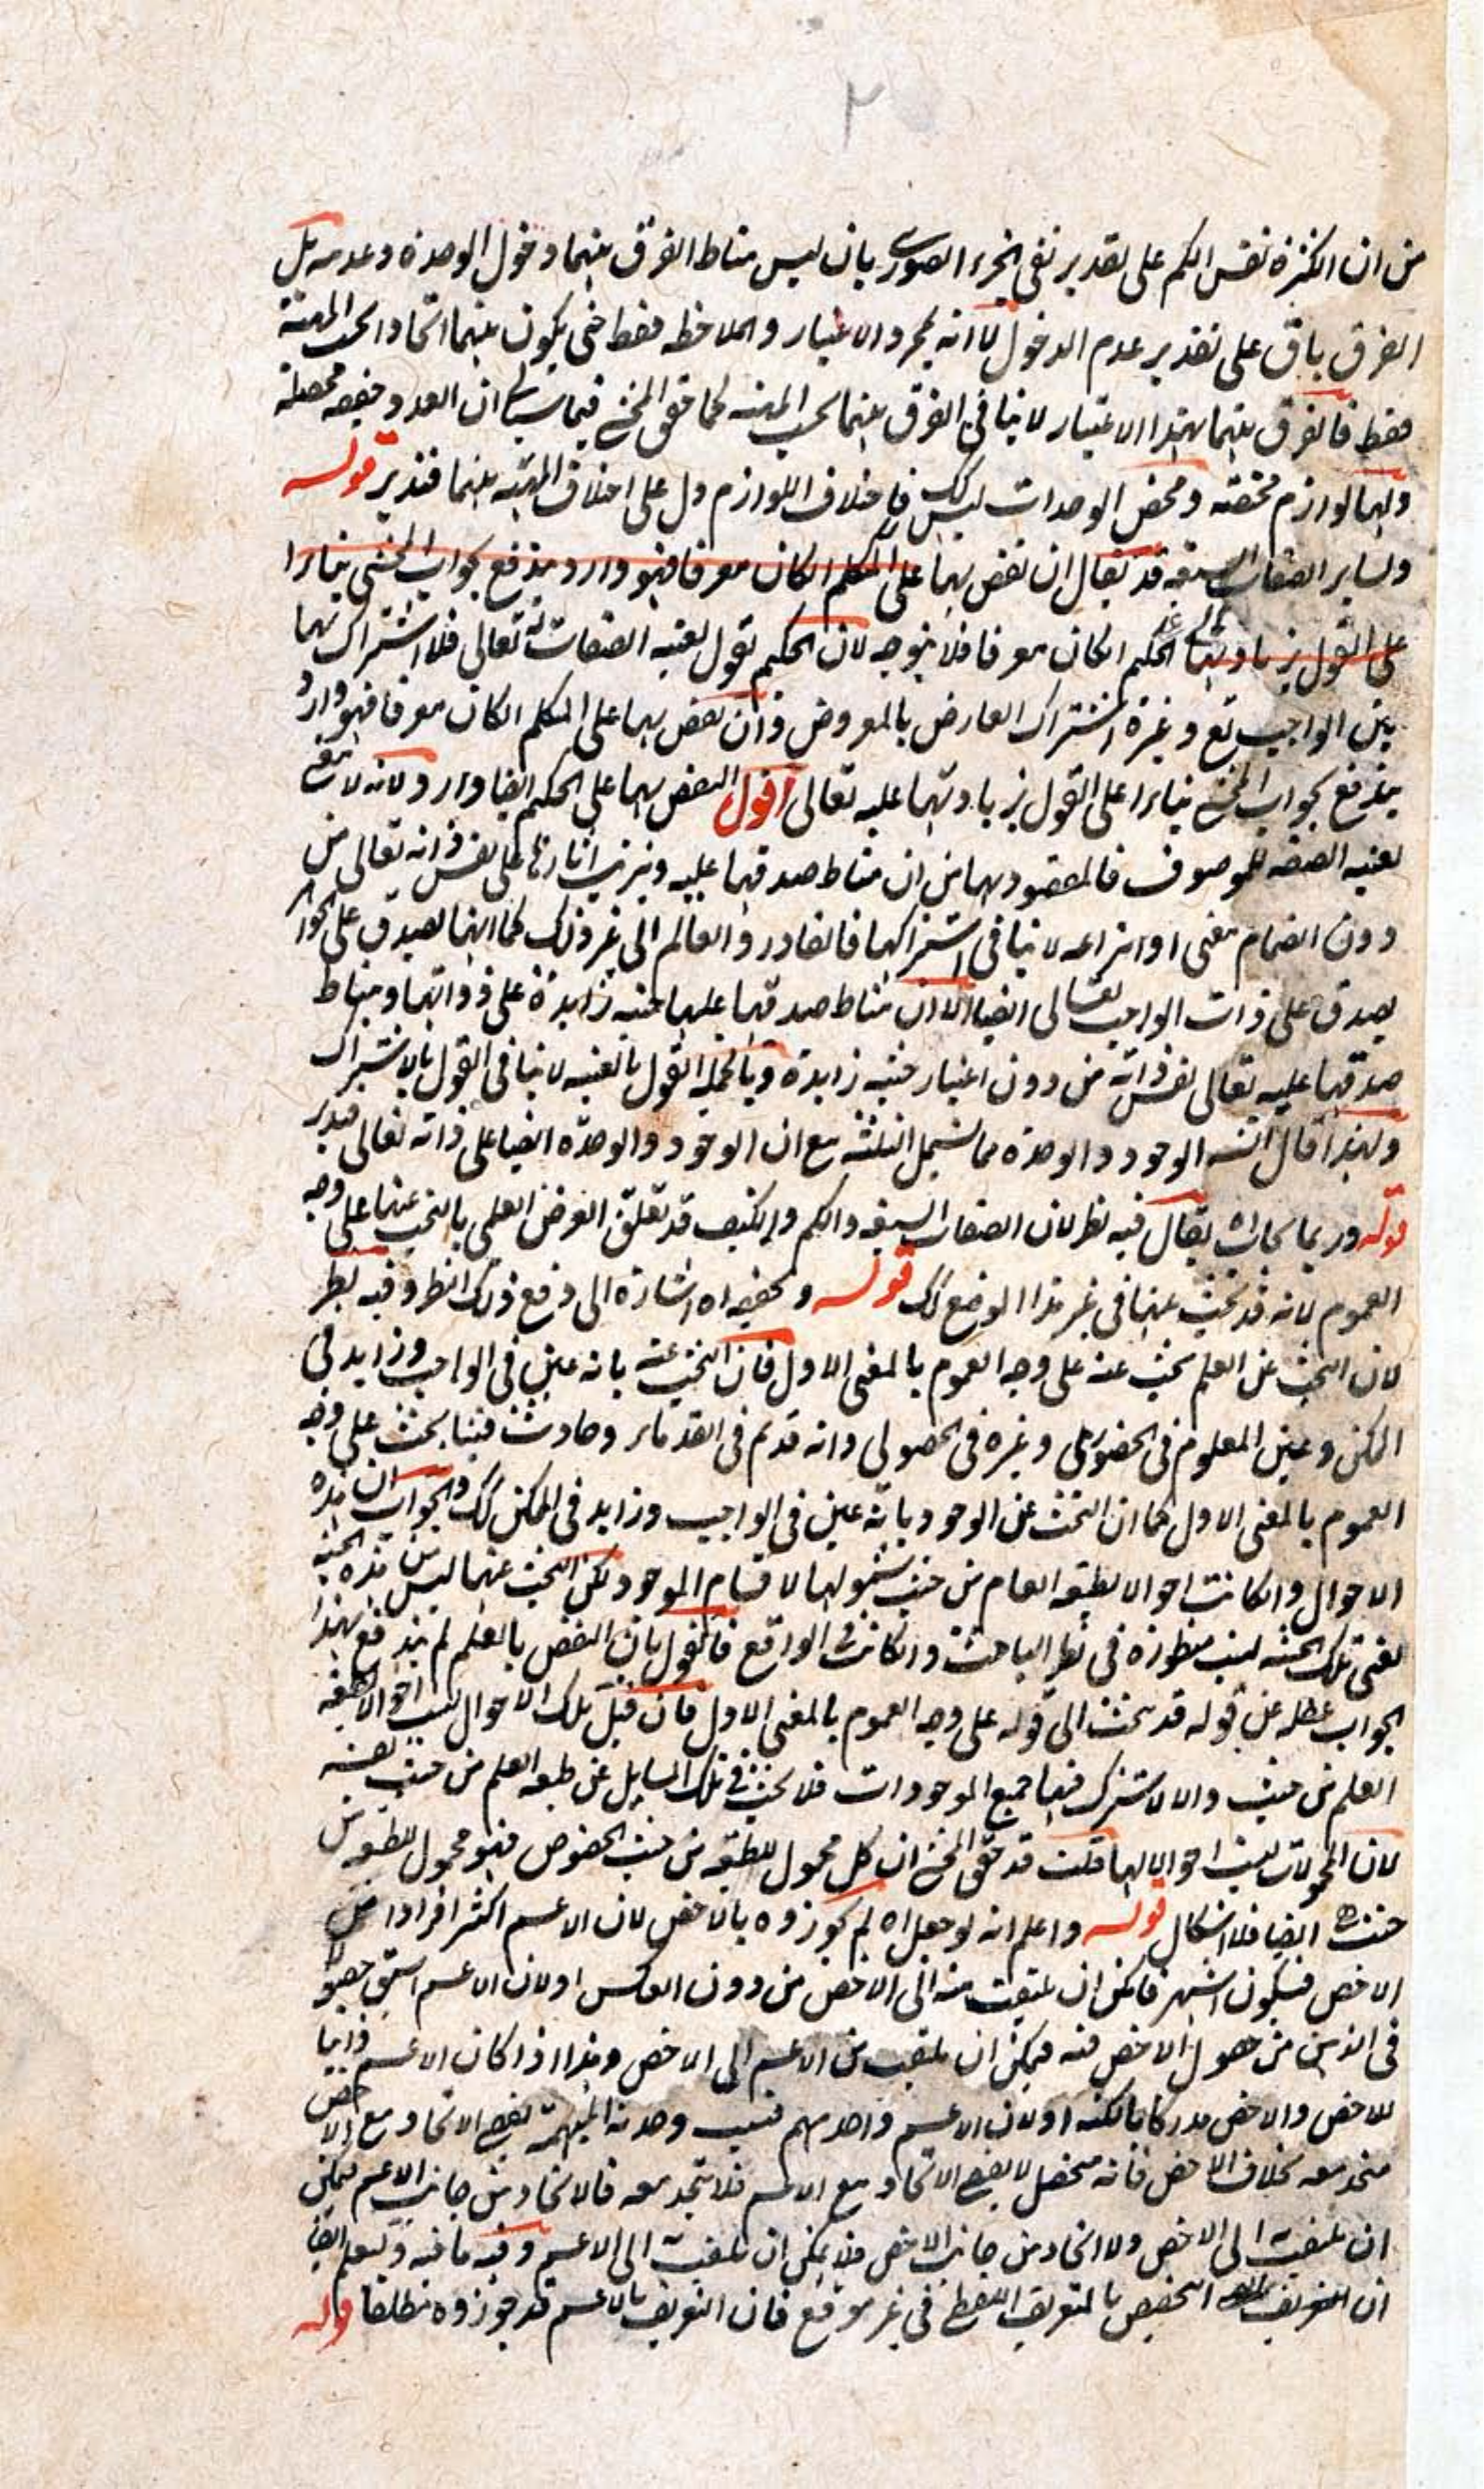 ٢
من ان الكثرة نفس الكم على تقدير نفى الجزء الصورى بان ليس مناط الفرق بينهما دخول الوحدة وعدمه بل
الفرق باق على تقدير عدم الدخول لا انه بمجرد الاعتبار والملاحظه فقط حتى يكون بينهما اتحاد بحسب المهية
فقط فالفرق بينهما بهذا الاعتبار لا ينافى الفرق بينهما بحسب المهيه كما حقق المحشى فيما سياتى ان العدد حقيقه محصله
ولهما لوازم مختصه ومحض الوحدات ليس كك فاختلاف اللوازم دل على اختلاف المهيه بينهما فتدبر قوله
ولساير الصفات السبعه قد يقال ان نقض بهما على المتكلم الكان معرفا فهو وارد يندفع بجواب المحشى بناء
على القول بزيادتهما الحكيم الكان معرفا فلا يتوجه لان الحكيم يقول بعينيه الصفات له تعالى فلا اشتراك لهما
بين الواجب تع وغيره اشتراك العارض بالمعروض وان نقض بهما على المتكلم الكان معرفا فهو وارد
يندفع بجواب المحشى بناء على القول بزيادتهما عليه تعالى اقول النقض بهما على الحكيم ايضا وارد لانه لا معنى
لعينيه الصفه للموصوف فالمقصود بهما من ان مناط صدقهما عليه وترتب اثارها على نفس ذاته تعالى من
دون انضمام معنى او انتزاعه لا ينافى اشتراكهما فالقادر والعالم الى غير ذلك كما انهما يصدق على الجواهر
يصدق على ذات الواجب تعالى ايضا الا ان مناط صدقهما عليها حيثيه زايدة على ذواتهما ومناط
صدقهما عليه تعالى نفس ذاته من دون اعتبار حيثيه زايدة وبالجمله القول بالعينيه لا ينافى القول بالاشتراك
ولهذا قال الوجود والوحدة مما تشمل الثلثه مع ان الوجود والوحدة ايضا على ذاته تعالى فتدبر
قوله وربما يجاب اه يقال فيه نظر لان الصفات السبعه والكم والكيف قد تعلق الغرض العلمى بالبحث عنها على وجه
العموم لانه قد بحث عنها فى غير هذا الموضع كك قوله وتحقيقه اه اشارة الى دفع ذلك النظر وفيه نظر
لان البحث عن العلم بحث عنه على وجه العموم بالمعنى الاول فان البحث عنه بانه عين فى الواجب وزايد فى
الممكن وعين المعلوم فى الحضورى وغيره فى الحصولى وانه قديم فى القدماء وحادث فينا بحث على وجه
العموم بالمعنى الاول كما ان البحث عن الوجود بانه عين فى الواجب وزايد فى الممكن كك والجواب ان هذه
الاحوال وان كانت احوالا لطبيعه العام من حيث شمولها لاقسام الموجود لكن البحث عنها ليس من هذه الحيثيه
يعنى تلك الحيثيه ليست منظورة فى نظر الباحث وان كانت فى الواقع فالقول بان النقض بالعلم لم يندفع بهذا
الجواب غفله عن قوله قد بحث الى قوله على وجه العموم بالمعنى الاول فان قيل تلك الاحوال ليست احوالا لطبيعه
العلم من حيث والا لاشترك فيها جميع الموجودات فلا بحث فى تلك المسايل عن طبيعه العلم من حيث نفسه
لان المحمولات ليست احوالا لها قلت قد حقق المحشى ان كل محمول للطبيعه من حيث الخصوص فهو محمول للطبيعه من
حيث هى ايضا فلا اشكال قوله واعلم انه لو جعل اه لم يجوزوه بالاخص لان الاعم اكثر افرادا من
الاخص فيكون اشهر فامكن ان يلتفت منه الى الاخص من دون العكس او لان الاعم اسبق حصولا
فى الذهن من حصول الاخص فيه فيمكن ان يلتفت من الاعم الى الاخص وهذا اذا كان الاعم ذاتيا
للاخص والاخص مدركا بالكنه او لان الاعم واحد مبهم فبسبب وحدته المبهمة يقبل الاتحاد مع الاخص
متحد معه بخلاف الاخص فانه متحصل لا يقبل الاتحاد مع الاعم فلا يتحد معه فالاتحاد من جانب الاعم فيمكن
ان يلتفت الى الاخص ولا اتحاد من جانب الاخص فلا يمكن ان يلتفت الى الاعم وفيه ما فيه وليعلم ايضا
ان التخصيص بالتعريف اللفظى فى غير موقع فان التعريف بالاعم قد جوزوه مطلقا قوله